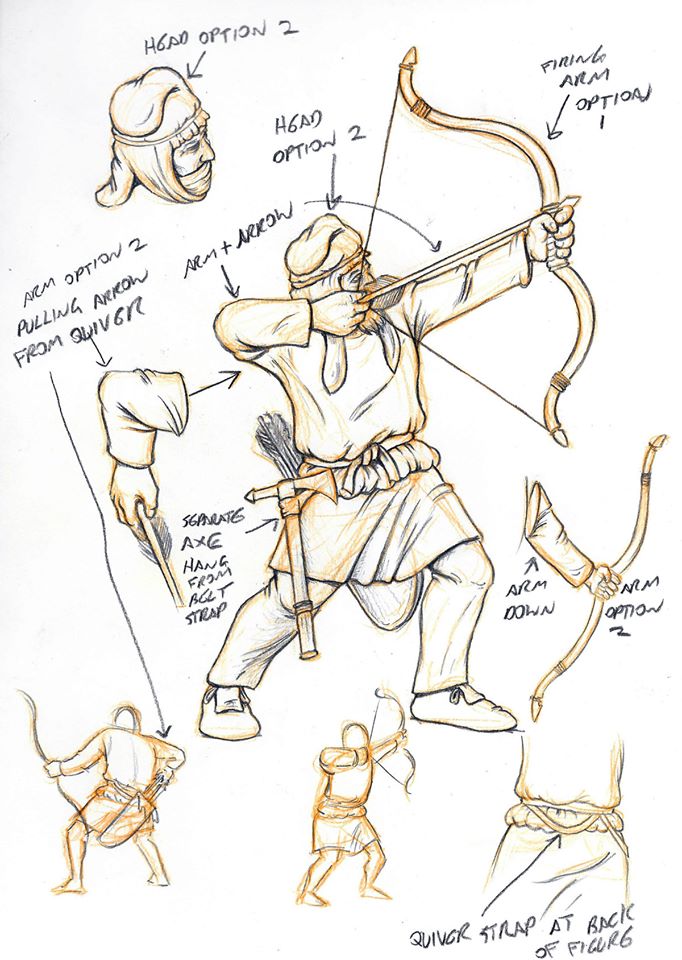 HEAD OPTION 2
FIRING
ARM
OPTION
1
HEAD
OPTION 2
ARM + ARROW
ARM OPTION 2
PULLING ARROW
FROM QUIVER
SEPARATE
AXE
HANG
FROM
BELT
STRAP
ARM
DOWN
ARM
OPTION
2
QUIVER STRAP AT BACK
OF FIGURE